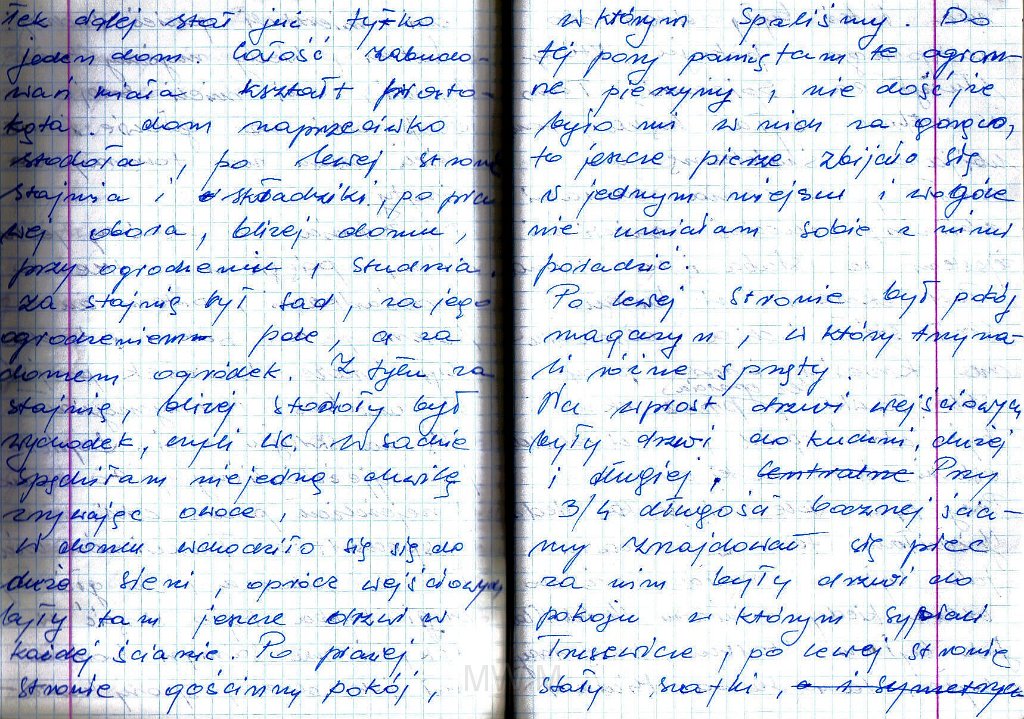 łek dalej stał już tylko
jeden dom. Całość zabudo-
wań miała kształt prosto-
kąta. dom naprzeciwko
stodoła, po lewej stronie
stajnia i składziki, po pra
wej obora, bliżej domu,
przy ogrodzeniu, studnia.
Za stajnią był sad, za jego
ogrodzeniem pole, a za
domem ogródek. Z tyłu za
stajnią, bliżej stodoły był
wychodek, czyli WC. W sadzie
spędziłam niejedną chwilę
zrywając owoce,
W domu wchodziło się się do
dużej sieni, oprócz wejściowych
były tam jeszcze drzwi w
każdej ścianie. Po prawej
stronie gościnny pokój,
w którym spaliśmy. Do
tej pory pamiętam te ogrom-
ne pierzyny, nie dość że
było mi w nich za gorąco,
to jeszcze pierze zbijało się
w jednym miejscu i wogóle
nie umiałam sobie z nimi
poradzić.
Po lewej stronie był pokój
magazyn, w który trzyma-
li różne sprzęty.
Na wprost drzwi wejściowych
były drzwi do kuchni, dużej
i długiej, Centralne Przy
3/4 długości bocznej ścia-
ny znajdował się piec
za nim były drzwi do
pokoju w którym sypiali
Trusewicze, po lewej stronie
stały szafki, a i symetrycz
MWM